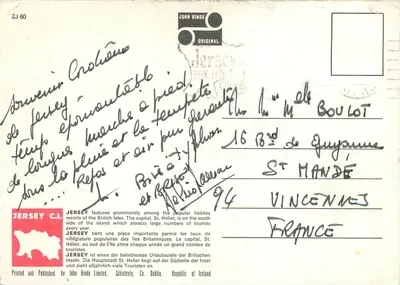 2J 60
JOHN HINDE
ORIGINAL
Jersey
Souvenir Cordiaux
de Jersey
temps épouvantable
de longue marche à pied
dans la pluie et la tempête
Repos et air pur
et
Mlle BOULOT
16 Bd de Guyenne
ST MANDÉ
94 VINCENNES
FRANCE
JERSEY C.I.
JERSEY features prominently among the popular holiday
resorts of the British Isles. The capital, St. Helier, is on the south
side of the island which attracts large numbers of tourists
every year.
JERSEY tient une place importante parmi les lieux de
villégiature populaires des Iles Britanniques. Le capital, St.
Hélier, au sud de l'île attire chaque année un grand nombre de
touristes.
JERSEY ist eines der beliebtesten Urlaubsziele der Britischen
Inseln. Die Hauptstadt St. Helier liegt auf der Südseite der Insel
und zieht alljährlich viele Touristen an.
Printed and Published by John Hinde Limited, Cabinteely, Co. Dublin, Republic of Ireland.